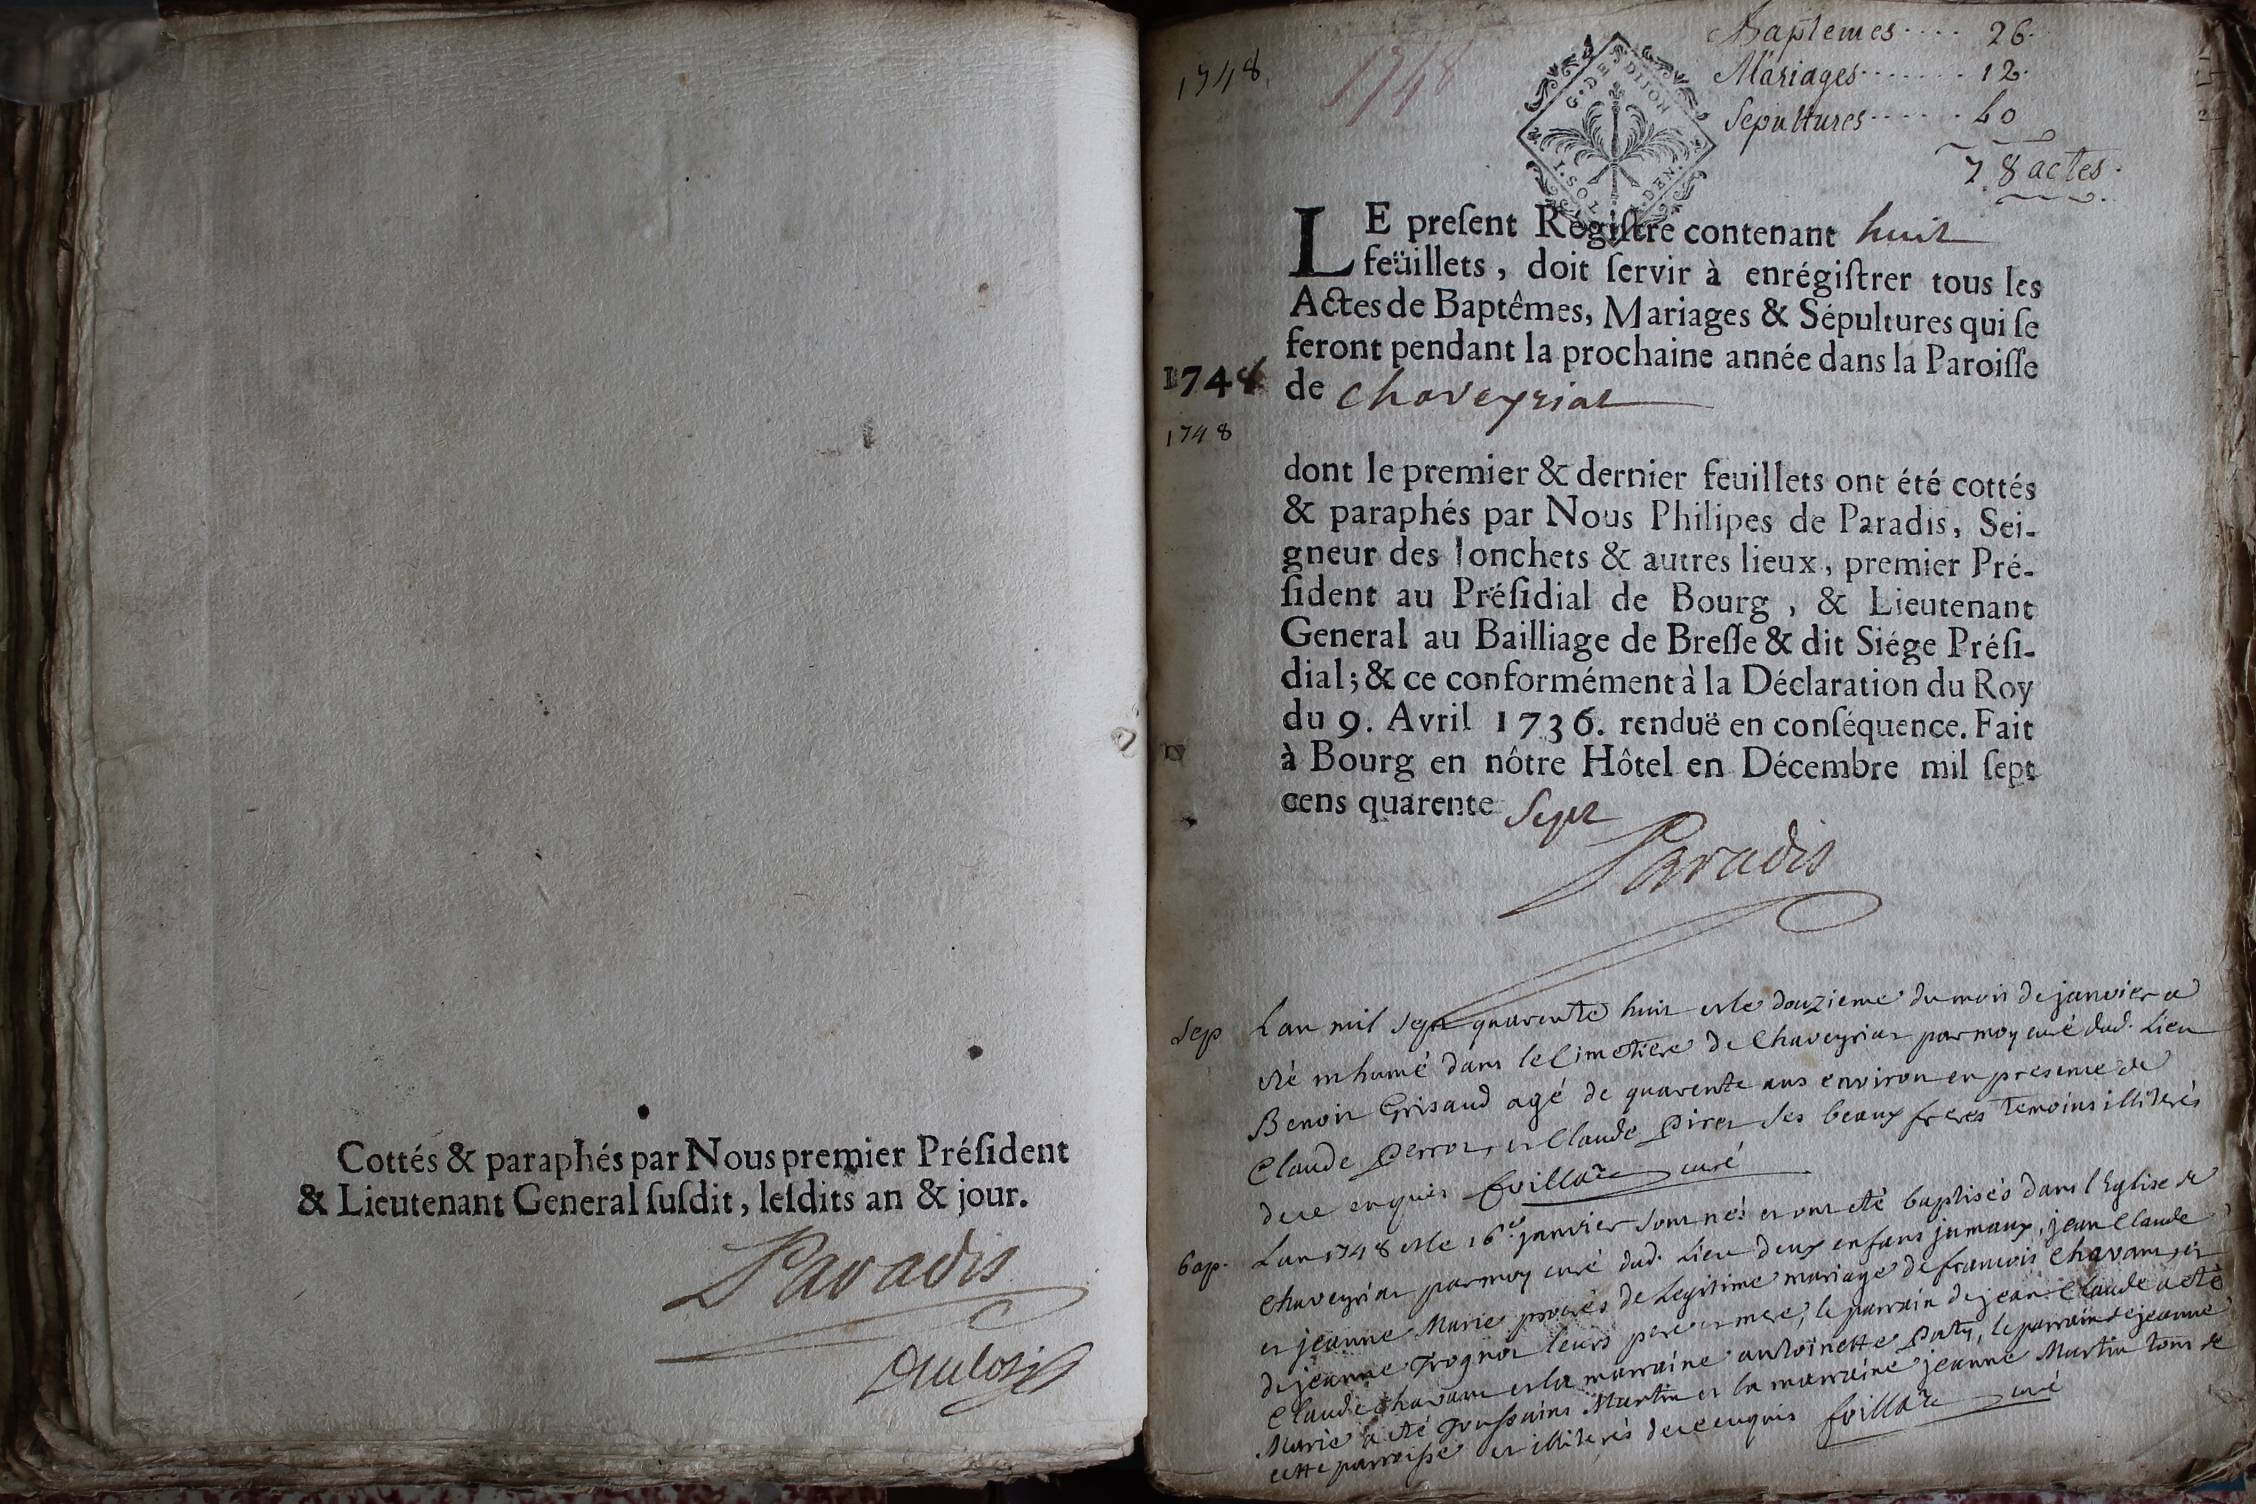 Cottés & paraphés par Nous premier Préſident
& Lieutenant General ſuſdit, leſdits an & jour.
Paradis
1748.
1748
Baptemes.... 26.
Mariages....... 12.
Sepultures...... 40
78 actes.
G. DE DIJON
LE preſent Regiſtre contenant huit
feüillets, doit ſervir à enrégiſtrer tous les
Actes de Baptêmes, Mariages & Sépultures qui ſe
feront pendant la prochaine année dans la Paroiſſe
1748 de Chaveyriat
1748
dont le premier & dernier feuillets ont été cottés
& paraphés par Nous Philipes de Paradis, Sei-
gneur des Ionchets & autres lieux, premier Pré-
ſident au Préſidial de Bourg, & Lieutenant
General au Bailliage de Breſſe & dit Siége Préſi-
dial; & ce conformément à la Déclaration du Roy
du 9. Avril 1736. renduë en conſéquence. Fait
à Bourg en nôtre Hôtel en Décembre mil ſept
cens quarente Sept
Paradis
Sep L'an mil sept quarente huit et le douzieme du mois de janvier a
été inhumé dans le Cimetiere de Chaveyriat par moy curé dud. Lieu
Benoit Grisaud agé de quarente ans environ en presence de
Claude Perrot, et Claude Piret ses beaux freres temoins illiterés
de ce enquis curé
bap. L'an 1748 et le 16e. janvier sont nés et ont été baptisés dans l'Eglise de
Chaveyriat par moy curé dud. Lieu deux enfans jumaux, jean Claude
et jeanne Marie procrés de Legitime mariage de francois Chavant, et
de jeanne Trognot leurs pere et mere, le parrain de jean Claude a été
Claude Chavant et la marraine antoinette Puty, le parrain de jeanne
Marie a été Toussaint Martin et la marraine jeanne Martin tous de
cette parroisse et illiterés de ce enquis curé